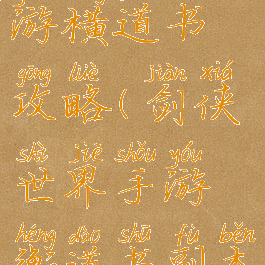 游横道书
gōng lüè jiàn xiá
攻略(剑侠
shì jiè shǒu yóu
世界手游
héng dào shū fù běn
横道书副本